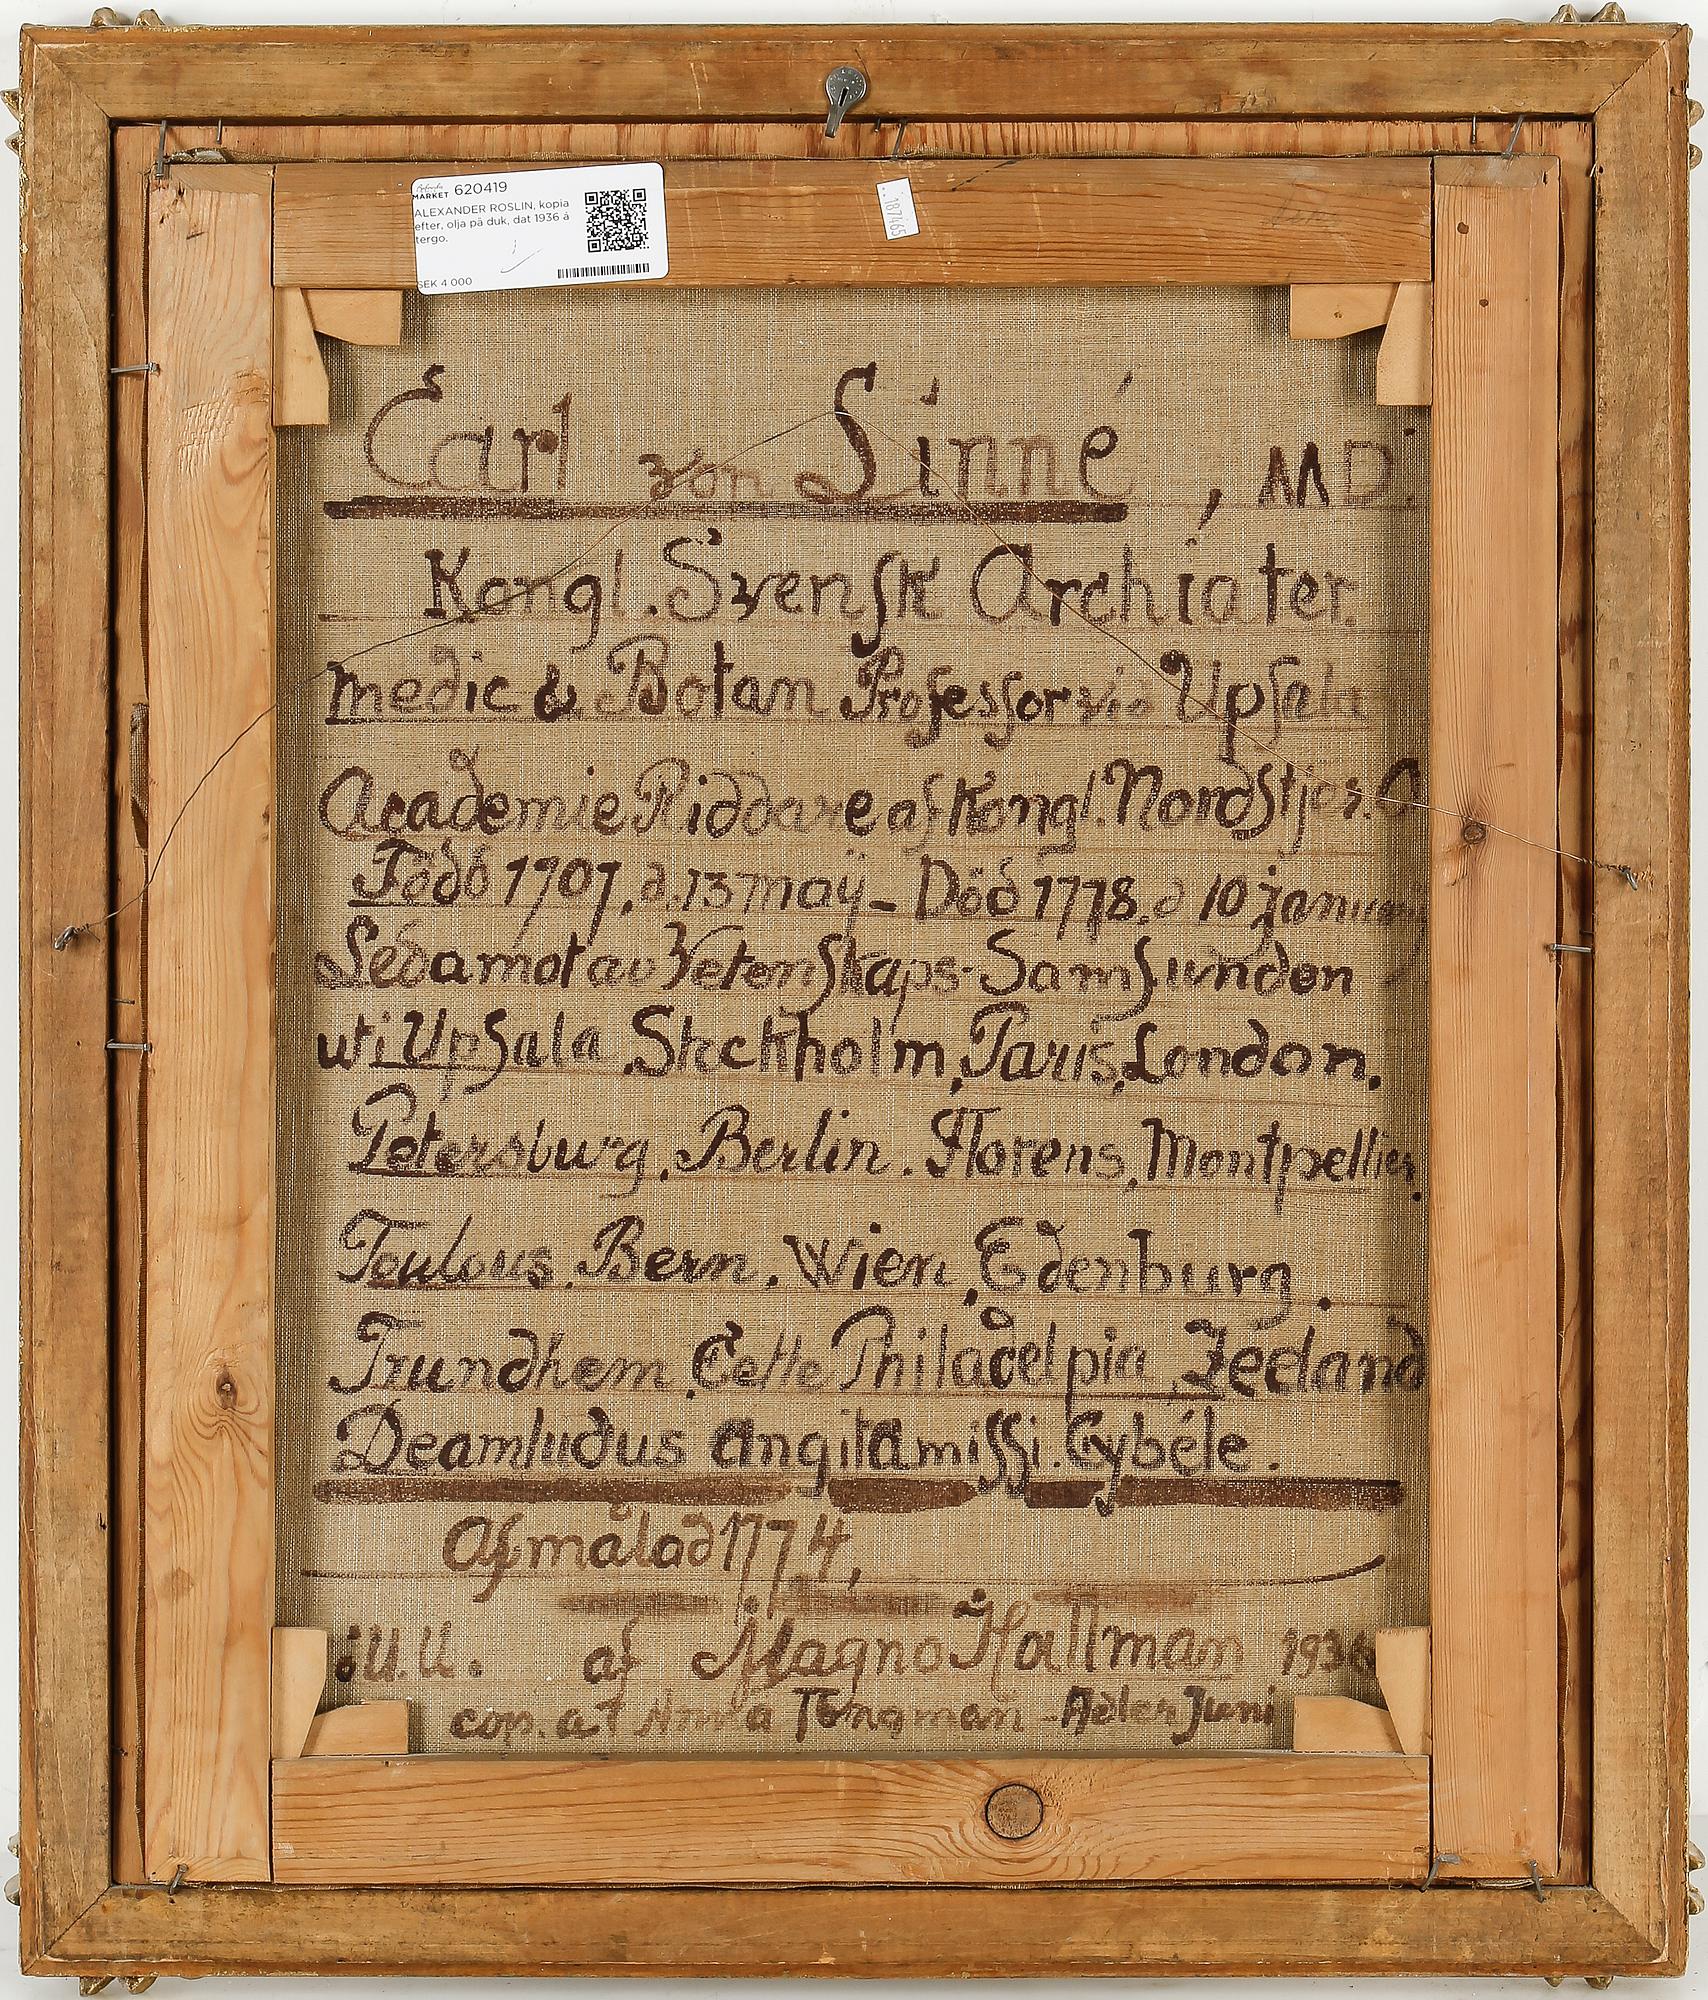 MARKET 620419
ALEXANDER ROSLIN, kopia
efter, olja på duk, dat 1936 á
tergo.
SEK 4 000
187465
Carl von Linné, MD.
Kongl. Svensk Archiater.
medic & Botan Professor vid Upsala
Academie Riddare af Kongl. Nordstjer. O
Född 1707. d. 13 maÿ - Död 1778. d 10 januari
Ledamot av Vetenskaps-Samfunden
uti Upsala, Stockholm, Paris, London,
Petersburg, Berlin. Florens, Montpellier,
Toulous. Bern. Wien, Edenburg,
Trundhem, Celle Philadelpia, Zeeland
Deamludus angitamissi. Cybéle.
Afmålad 1774,
:U.U. af Magno Hallman 1936
cop. af Anna Tongman-Adler Juni